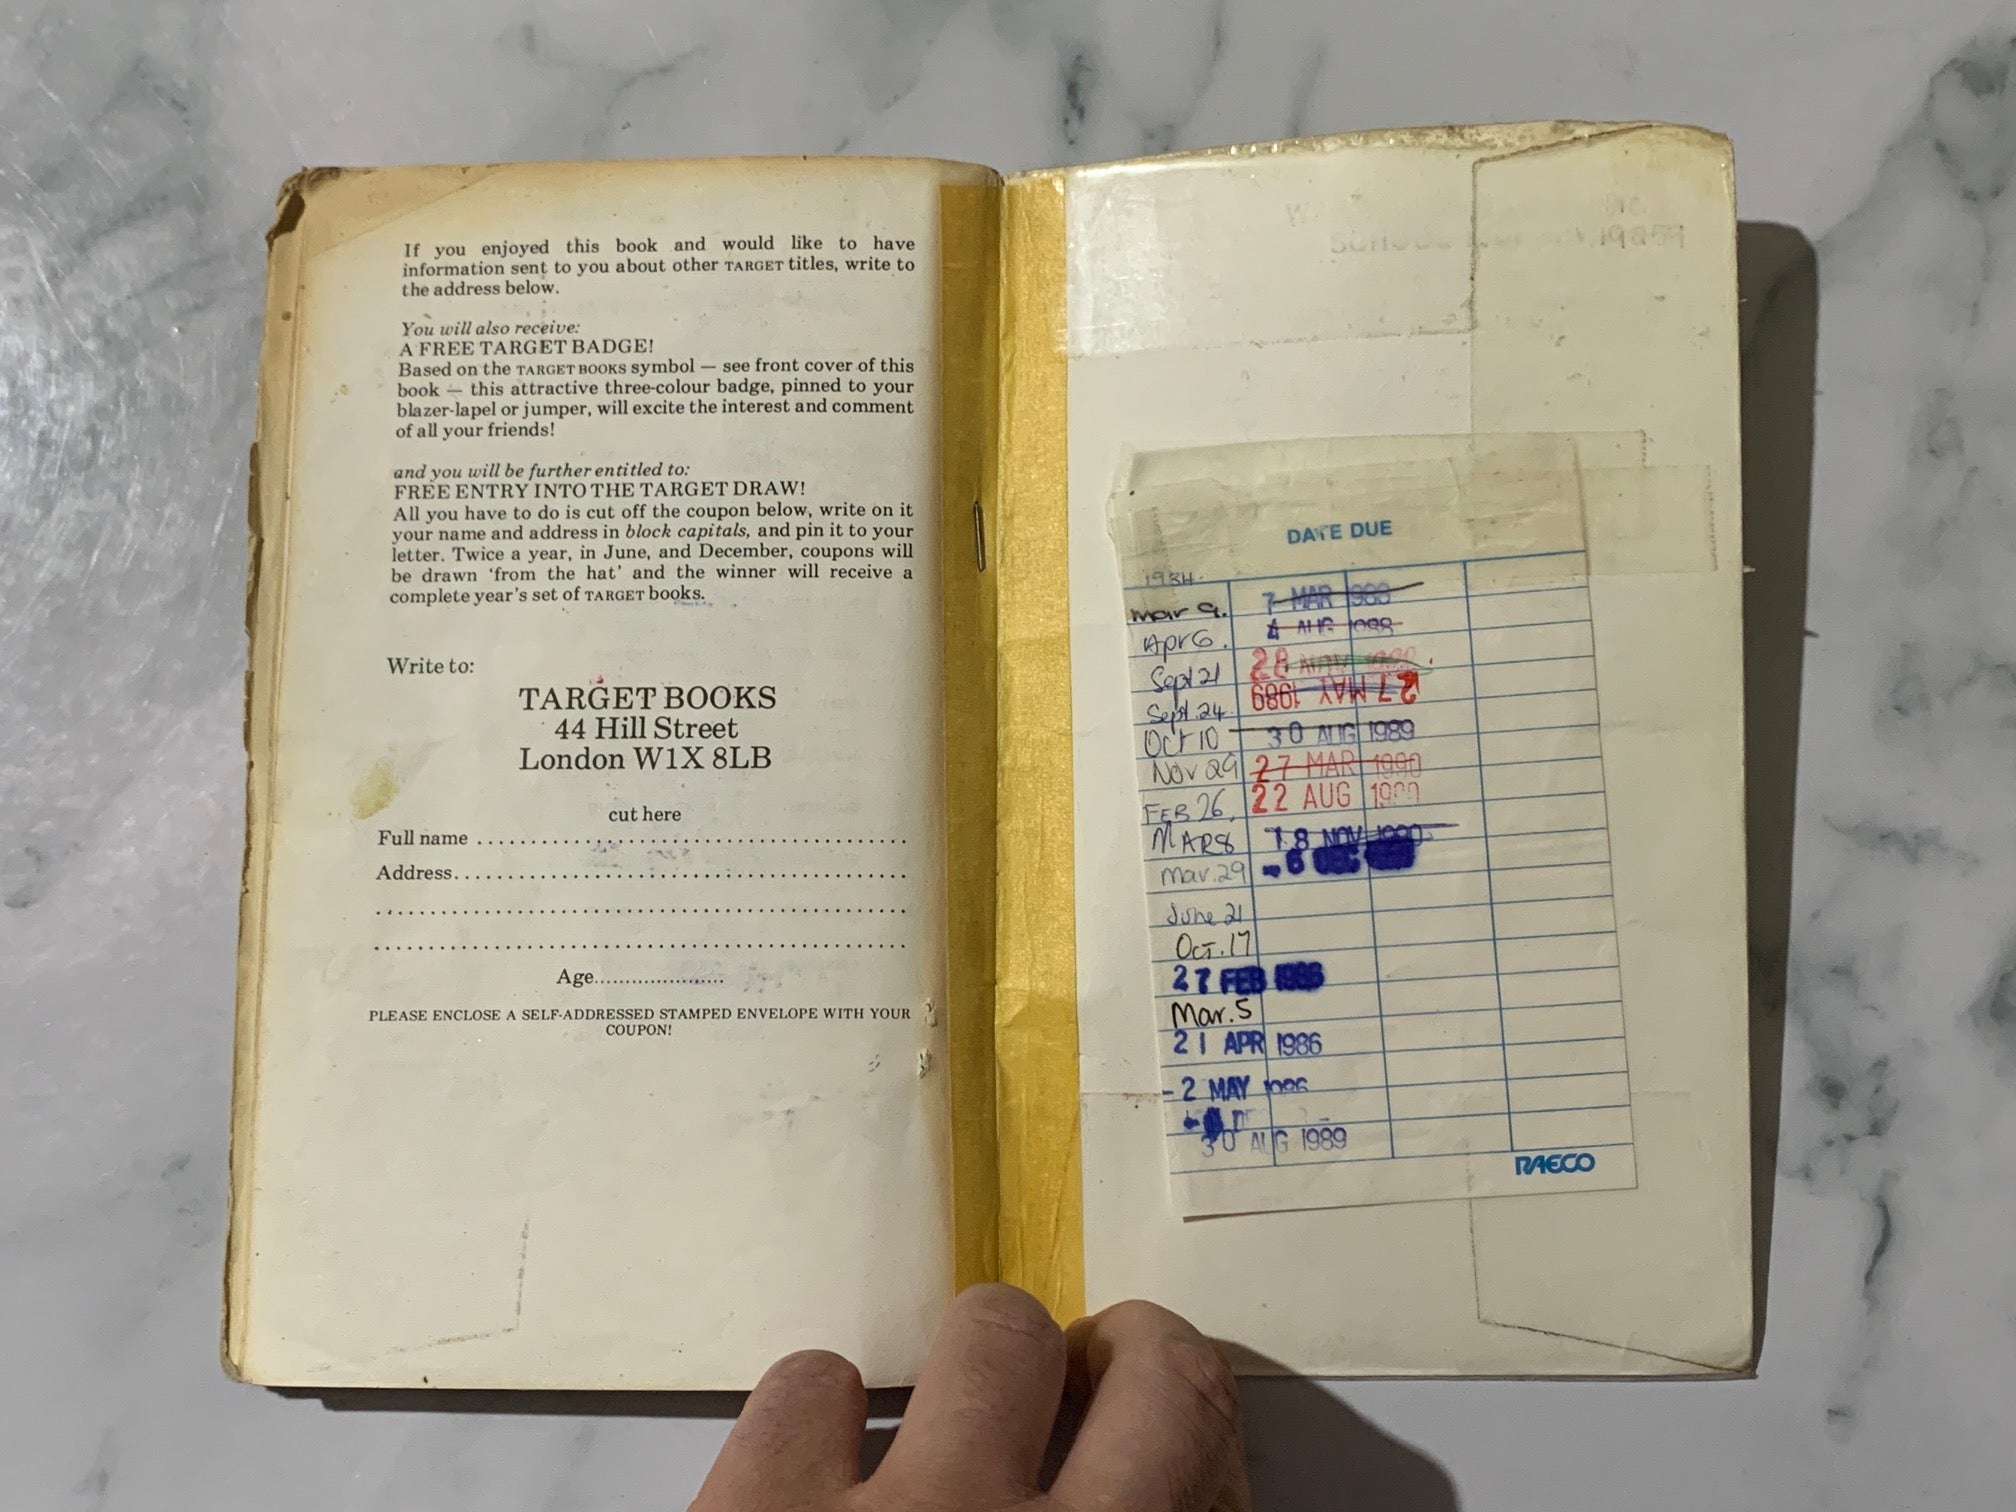 If you enjoyed this book and would like to have
information sent to you about other TARGET titles, write to
the address below.
You will also receive:
A FREE TARGET BADGE!
Based on the TARGET BOOKS symbol — see front cover of this
book — this attractive three-colour badge, pinned to your
blazer-lapel or jumper, will excite the interest and comment
of all your friends!
and you will be further entitled to:
FREE ENTRY INTO THE TARGET DRAW!
All you have to do is cut off the coupon below, write on it
your name and address in block capitals, and pin it to your
letter. Twice a year, in June, and December, coupons will
be drawn 'from the hat' and the winner will receive a
complete year's set of TARGET books.
Write to:
TARGET BOOKS
44 Hill Street
London W1X 8LB
cut here
Full name
Address
Age
PLEASE ENCLOSE A SELF-ADDRESSED STAMPED ENVELOPE WITH YOUR
COUPON!
DATE DUE
Mar 9.
Apr 6.
Sept 21
Sept. 24
Oct 10
Nov 29
FEB 26,
MAR 8
Mar. 29
June 21
Oct. 17
27 FEB 1986
Mar. 5
21 APR 1986
-2 MAY 1986
30 AUG 1989
7 MAR 1988
4 AUG 1988
28 NOV
27 MAY 1989
30 AUG 1989
27 MAR 1990
22 AUG 1990
18 NOV 1990
-6 DEC
RAECO